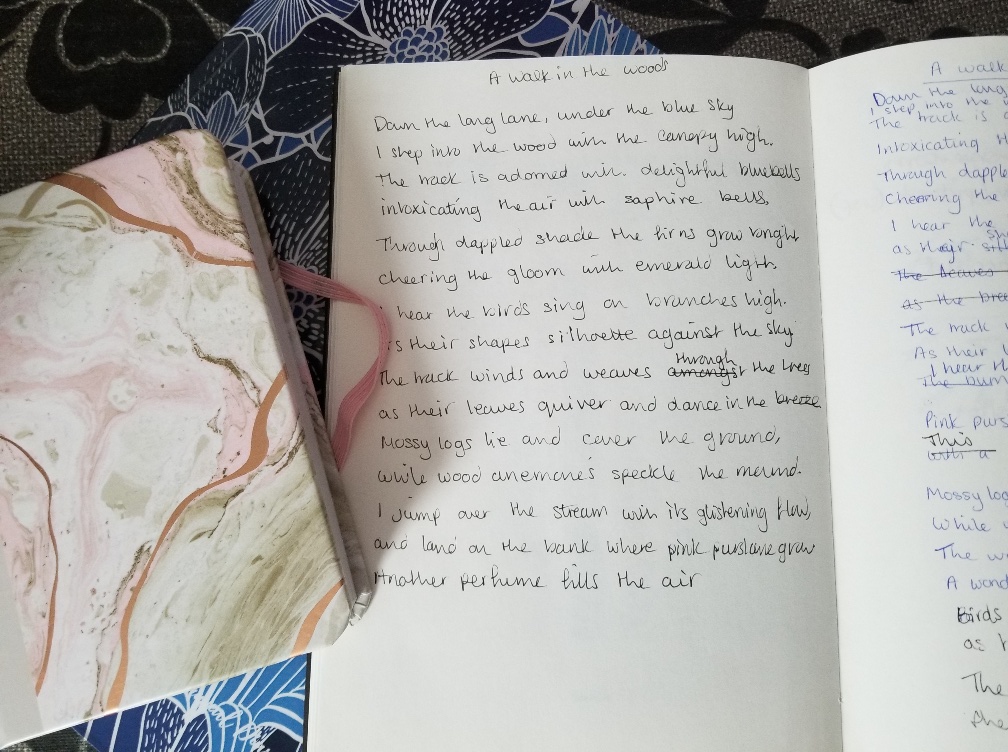 A walk in the woods
Down the long lane, under the blue sky
I step into the wood with the canopy high.
The track is adorned with. delightful bluebells
intoxicating the air with saphire bells,
Through dappled shade the firns grow bright,
cheering the gloom with emerald ligth,
I hear the birds sing on branches high.
as their shapes silhoutte against the sky
The track winds and weaves amongst through the trees
as their leaves quiver and dance in the breeze
Mossy logs lie and cover the ground,
while wood anemone's speckle the mound.
I jump over the stream with its glistening flow,
and land on the bank where pink purslane grow
Another perfume fills the air
A walk
Down the long
I step into the
The track is
Intoxicating
Through dapple
Cheering the
I hear the
as their
The leaves
as the bree
The track
As their
I hear
The
Pink purs
This
with a
Mossy log
While
The
A wond
Birds
as
The
the